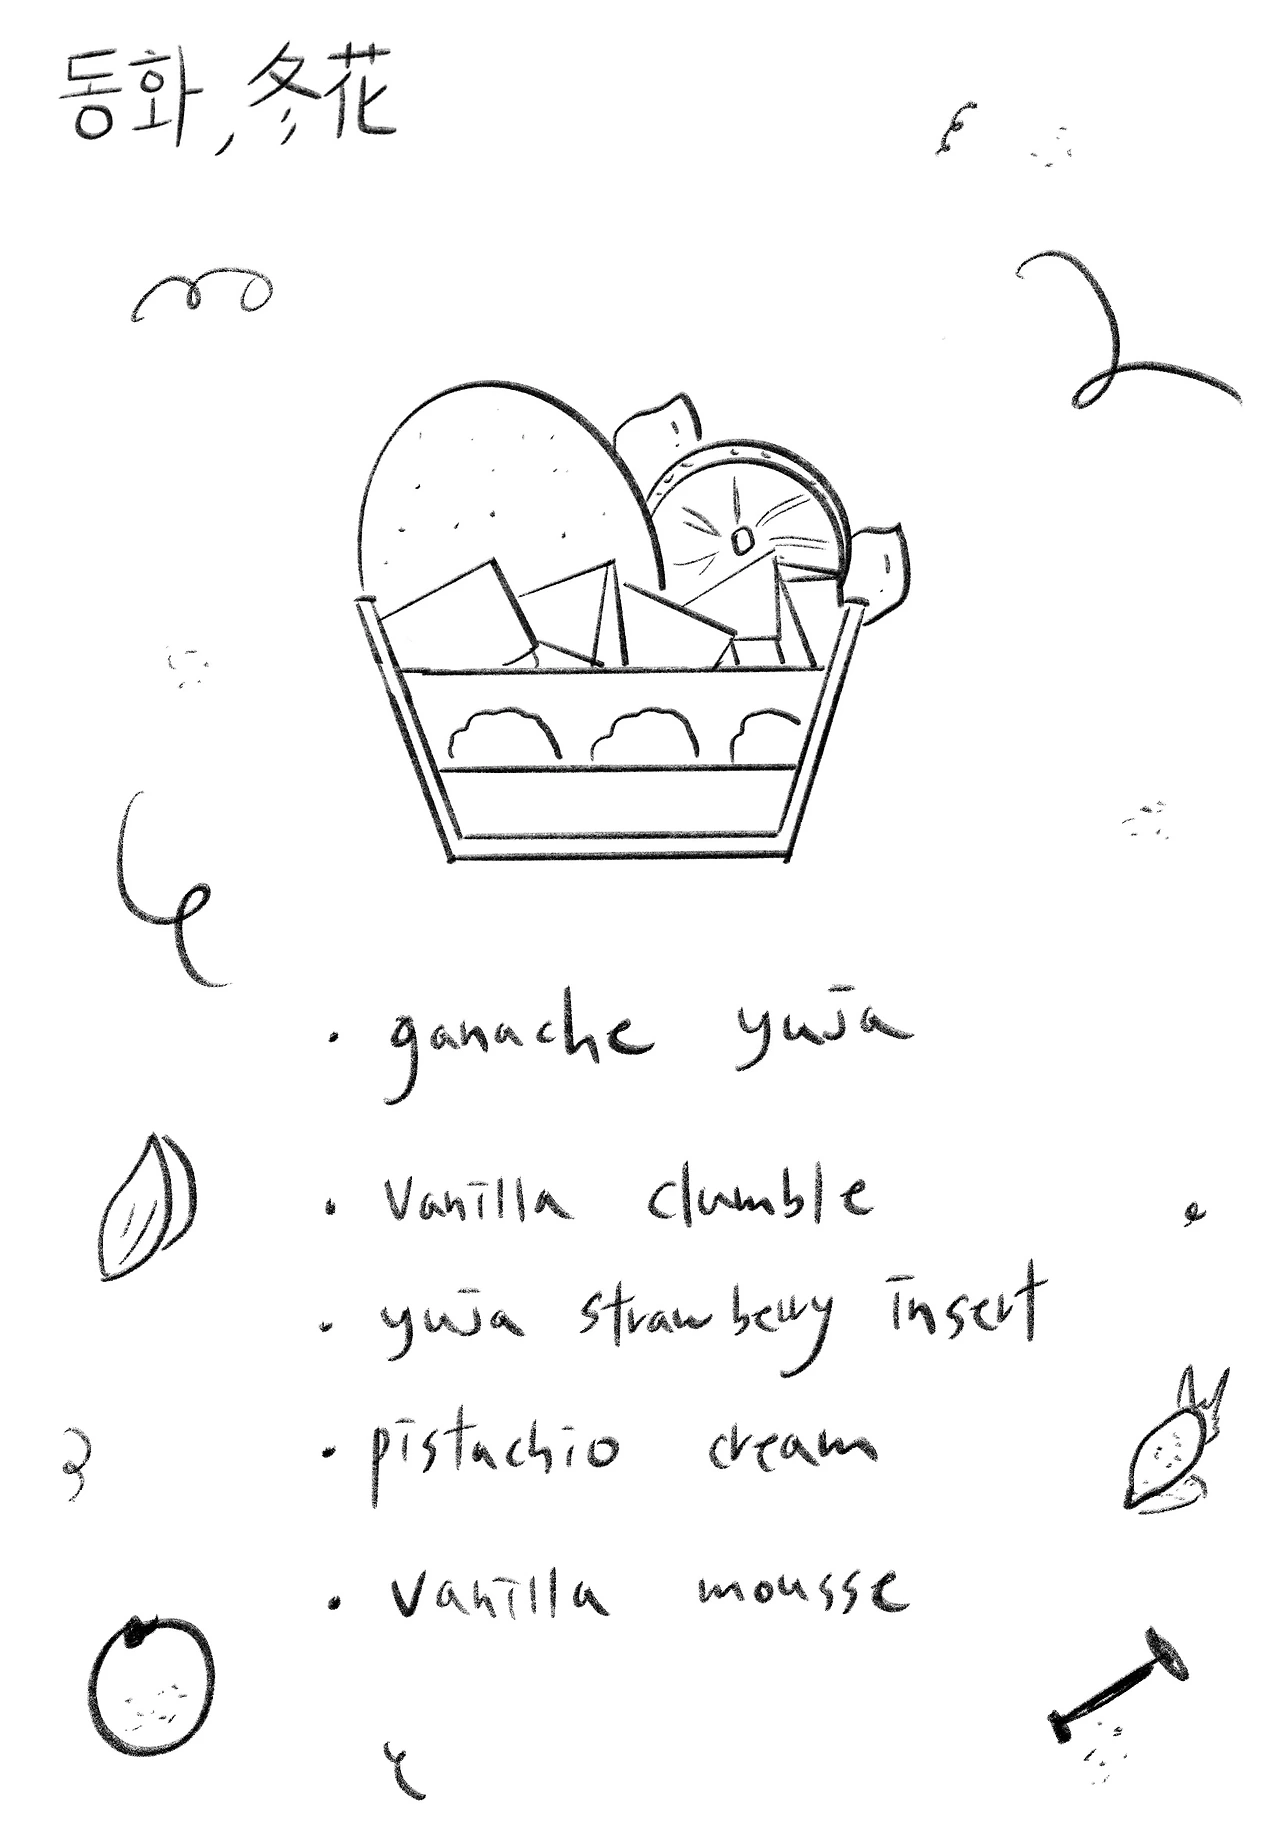 동화, 冬花
· ganache yuja
· vanilla clumble
· yuja strawberry insert
· pistachio cream
· vanilla mousse